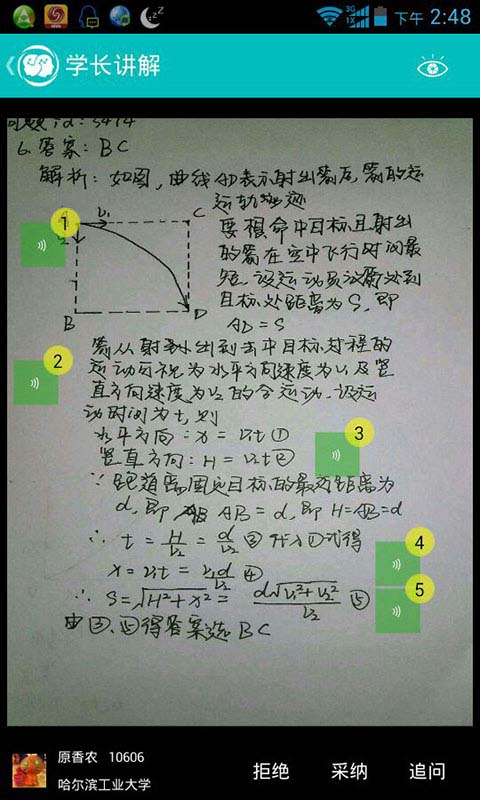 3G
1X
下午 2:48
学长讲解
6. 答案: BC
解析: 如图, 曲线AD表示射出箭后, 箭的运
运动轨迹
1
V₁
C
要想命中目标且射出
的箭在空中飞行时间最
短, 设运动员放箭处到
目标处距离为S, 即
AD = S
B
D
2
箭从射出到击中目标过程的
运动可视为水平方向速度为V₁及竖
直方向速度为V₂的合运动. 设运
动时间为t, 则
3
水平方向: x = V₁t ①
竖直方向: H = V₂t ②
∵ 跑道离固定目标的最近距离为
d, 即 AB = d, 即 H=AB=d
4
∴ t = H/V₂ = d/V₂ ③ 代入①式得
x = V₁t = V₁d/V₂ ④
5
∴ S = √(H²+x²) = d√(V₁²+V₂²)/V₂ ⑤
由③、⑤得答案选 BC
原香农 10606
哈尔滨工业大学
拒绝 采纳 追问